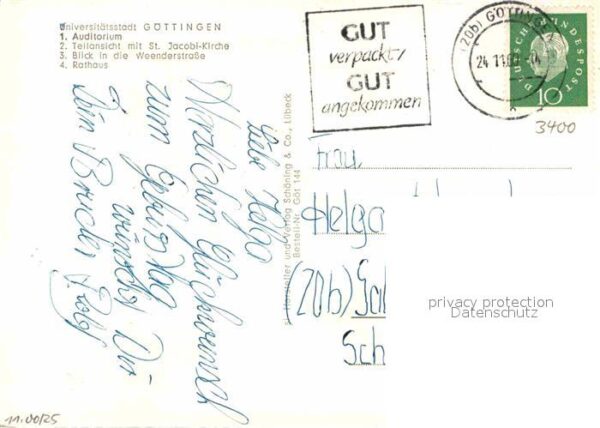 Universitätsstadt GÖTTINGEN
1. Auditorium
2. Teilansicht mit St. Jacobi-Kirche
3. Blick in die Weenderstraße
4. Rathaus
GUT
verpackt,
GUT
angekommen
(20b) GÖTTINGEN
24.11.
DEUTSCHE BUNDESPOST
10
3400
Liebe Helga
Herzlichen Glückwunsch
zum Geburtstag
wünscht Dir
Dein Bruder Rolf
Hersteller und Verlag Schöning & Co., Lübeck
Bestell-Nr. Göt 144
Frau
Helga
(20b)
Sch
privacy protection
Datenschutz
11.00/25